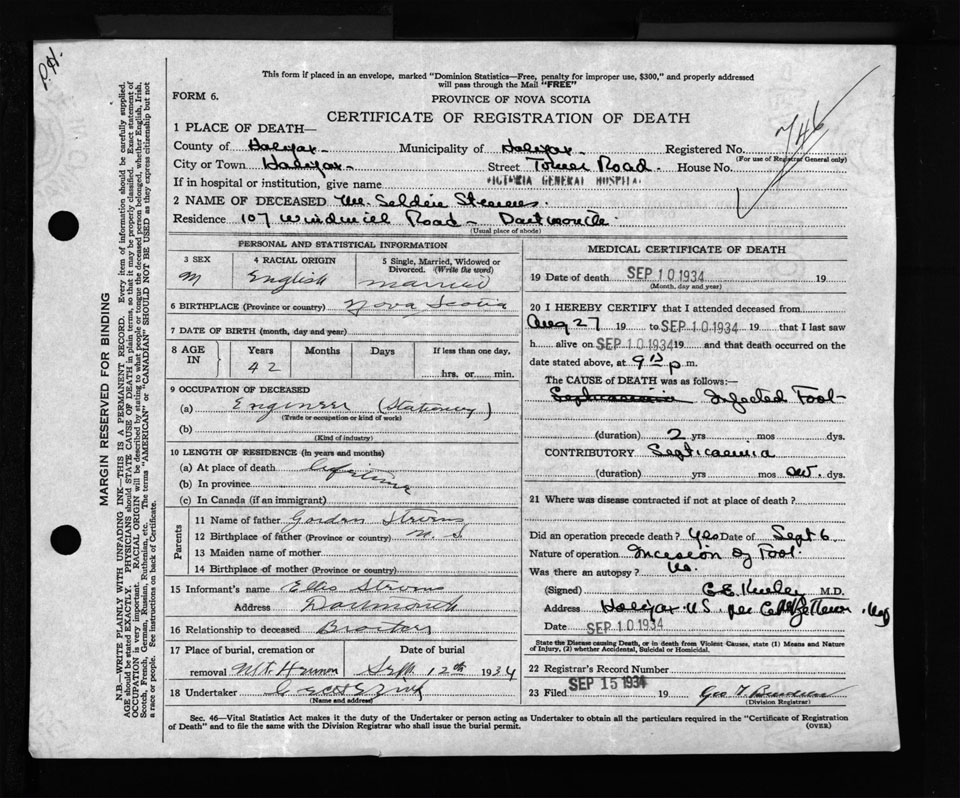 P.H.
This form if placed in an envelope, marked "Dominion Statistics—Free, penalty for improper use, $300," and properly addressed
will pass through the Mail "FREE"
FORM 6.
PROVINCE OF NOVA SCOTIA
CERTIFICATE OF REGISTRATION OF DEATH
746
1 PLACE OF DEATH—
County of Halifax Municipality of Halifax Registered No.
(For use of Registrar General only)
City or Town Halifax Street Tower Road. House No.
If in hospital or institution, give name VICTORIA GENERAL HOSPITAL
2 NAME OF DECEASED Wm. Selden Stevens.
Residence 107 Windmill Road - Dartmouth.
(Usual place of abode)
PERSONAL AND STATISTICAL INFORMATION
3 SEX 4 RACIAL ORIGIN 5 Single, Married, Widowed or
Divorced. (Write the word)
M English married
6 BIRTHPLACE (Province or country) Nova Scotia
7 DATE OF BIRTH (month, day and year)
8 AGE IN Years Months Days If less than one day,
42
hrs. or min.
9 OCCUPATION OF DECEASED
(a) Engineer (Stationery)
(Trade or occupation or kind of work)
(b)
(Kind of industry)
10 LENGTH OF RESIDENCE (in years and months)
(a) At place of death lifetime
(b) In province
(c) In Canada (if an immigrant)
Parents
11 Name of father Gordon Stevens
12 Birthplace of father (Province or country) N. S.
13 Maiden name of mother
14 Birthplace of mother (Province or country)
15 Informant's name Stevens
Address Dartmouth
16 Relationship to deceased Brother
17 Place of burial, cremation or Date of burial
removal Mt Hermon Sept. 12th 1934
18 Undertaker
(Name and address)
MEDICAL CERTIFICATE OF DEATH
19 Date of death SEP 10 1934 19
(Month, day and year)
20 I HEREBY CERTIFY that I attended deceased from
Aug 27 19 to SEP 10 1934 19 that I last saw
h alive on SEP 10 1934 19 and that death occurred on the
date stated above, at 9 p m.
The CAUSE of DEATH was as follows:—
Infected Foot
(duration) 2 yrs mos dys.
CONTRIBUTORY Septicaemia
(duration) yrs mos dys.
21 Where was disease contracted if not at place of death?
Did an operation precede death? Yes Date of Sept 6
Nature of operation Incision of Foot
Was there an autopsy? No.
(Signed) M.D.
Address Halifax N.S. per
Date SEP 10 1934
State the Disease causing Death, or in death from Violent Causes, state (1) Means and Nature
of Injury, (2) whether Accidental, Suicidal or Homicidal.
22 Registrar's Record Number
23 Filed SEP 15 1934 19 Geo
(Division Registrar)
Sec. 46—Vital Statistics Act makes it the duty of the Undertaker or person acting as Undertaker to obtain all the particulars required in the "Certificate of Registration
of Death" and to file the same with the Division Registrar who shall issue the burial permit. (OVER)
MARGIN RESERVED FOR BINDING
N.B.—WRITE PLAINLY WITH UNFADING INK—THIS IS A PERMANENT RECORD. Every item of information should be carefully supplied.
AGE should be stated EXACTLY. PHYSICIANS should STATE CAUSE OF DEATH in plain terms, so that it may be properly classified. Exact statement of
OCCUPATION is very important. RACIAL ORIGIN will be described by stating to what people or tongue the deceased person belonged, whether English, Irish,
Scotch, French, German, Russian, Ruthenian, etc. The terms "AMERICAN" or "CANADIAN" SHOULD NOT BE USED as they express citizenship but not
a race or people. See instructions on back of Certificate.